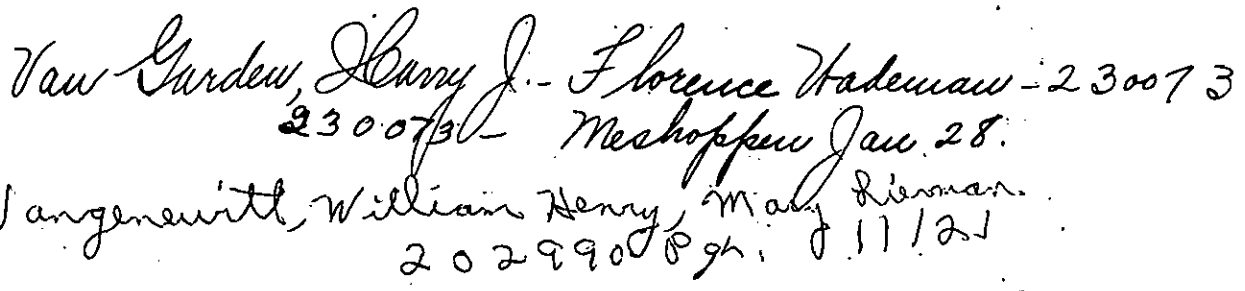 Van Gurden, Harry J. - Florence Wademan - 230073
230073 - Meshoppen Jan. 28.
Vangenewitt, William Henry, Mary Rieman.
202990 Pgh. 11/21